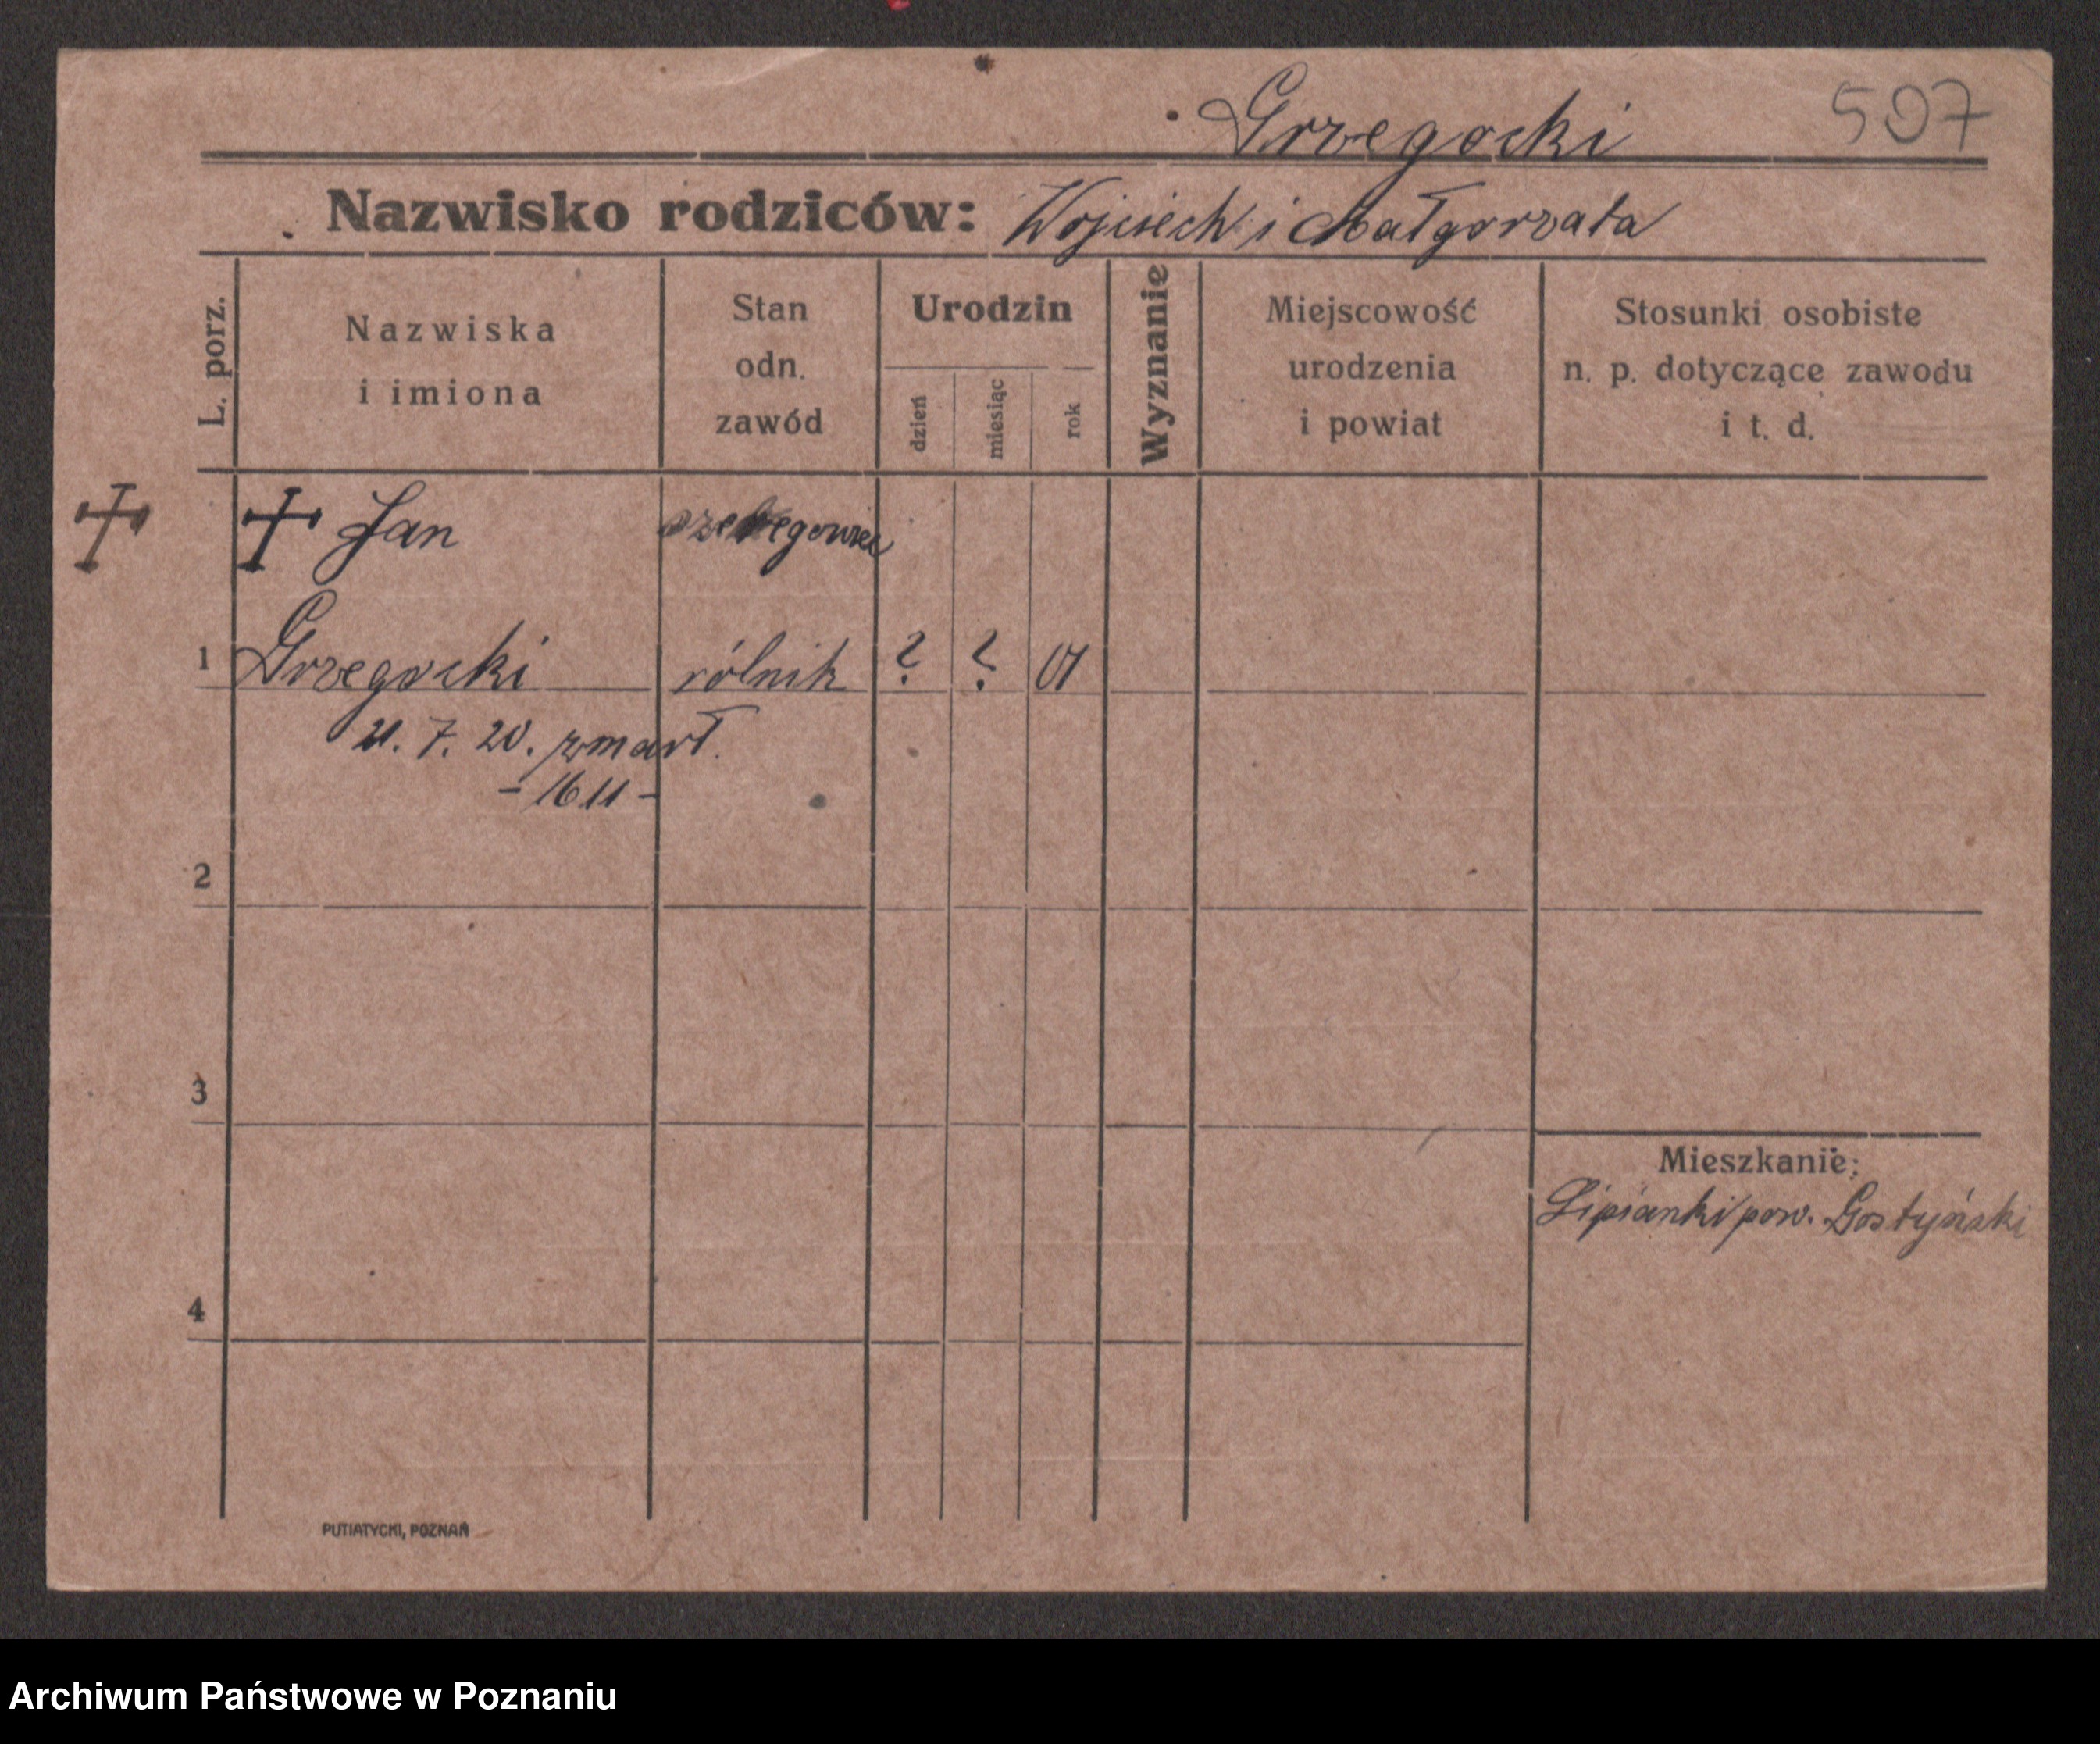 Grzegocki 597
Nazwisko rodziców: Wojciech i Małgorzata
L. porz.
Nazwiska
i imiona
Stan
odn.
zawód
Urodzin
dzień
miesiąc
rok
Wyznanie
Miejscowość
urodzenia
i powiat
Stosunki osobiste
n. p. dotyczące zawodu
i t. d.
Jan
1 Grzegocki rólnik ? ? 01
21. 7. 20. zmarł.
- 1611 -
2
3
4
Mieszkanie:
Lipianki pow. Gostyński
PUTIATYCKI, POZNAŃ
Archiwum Państwowe w Poznaniu